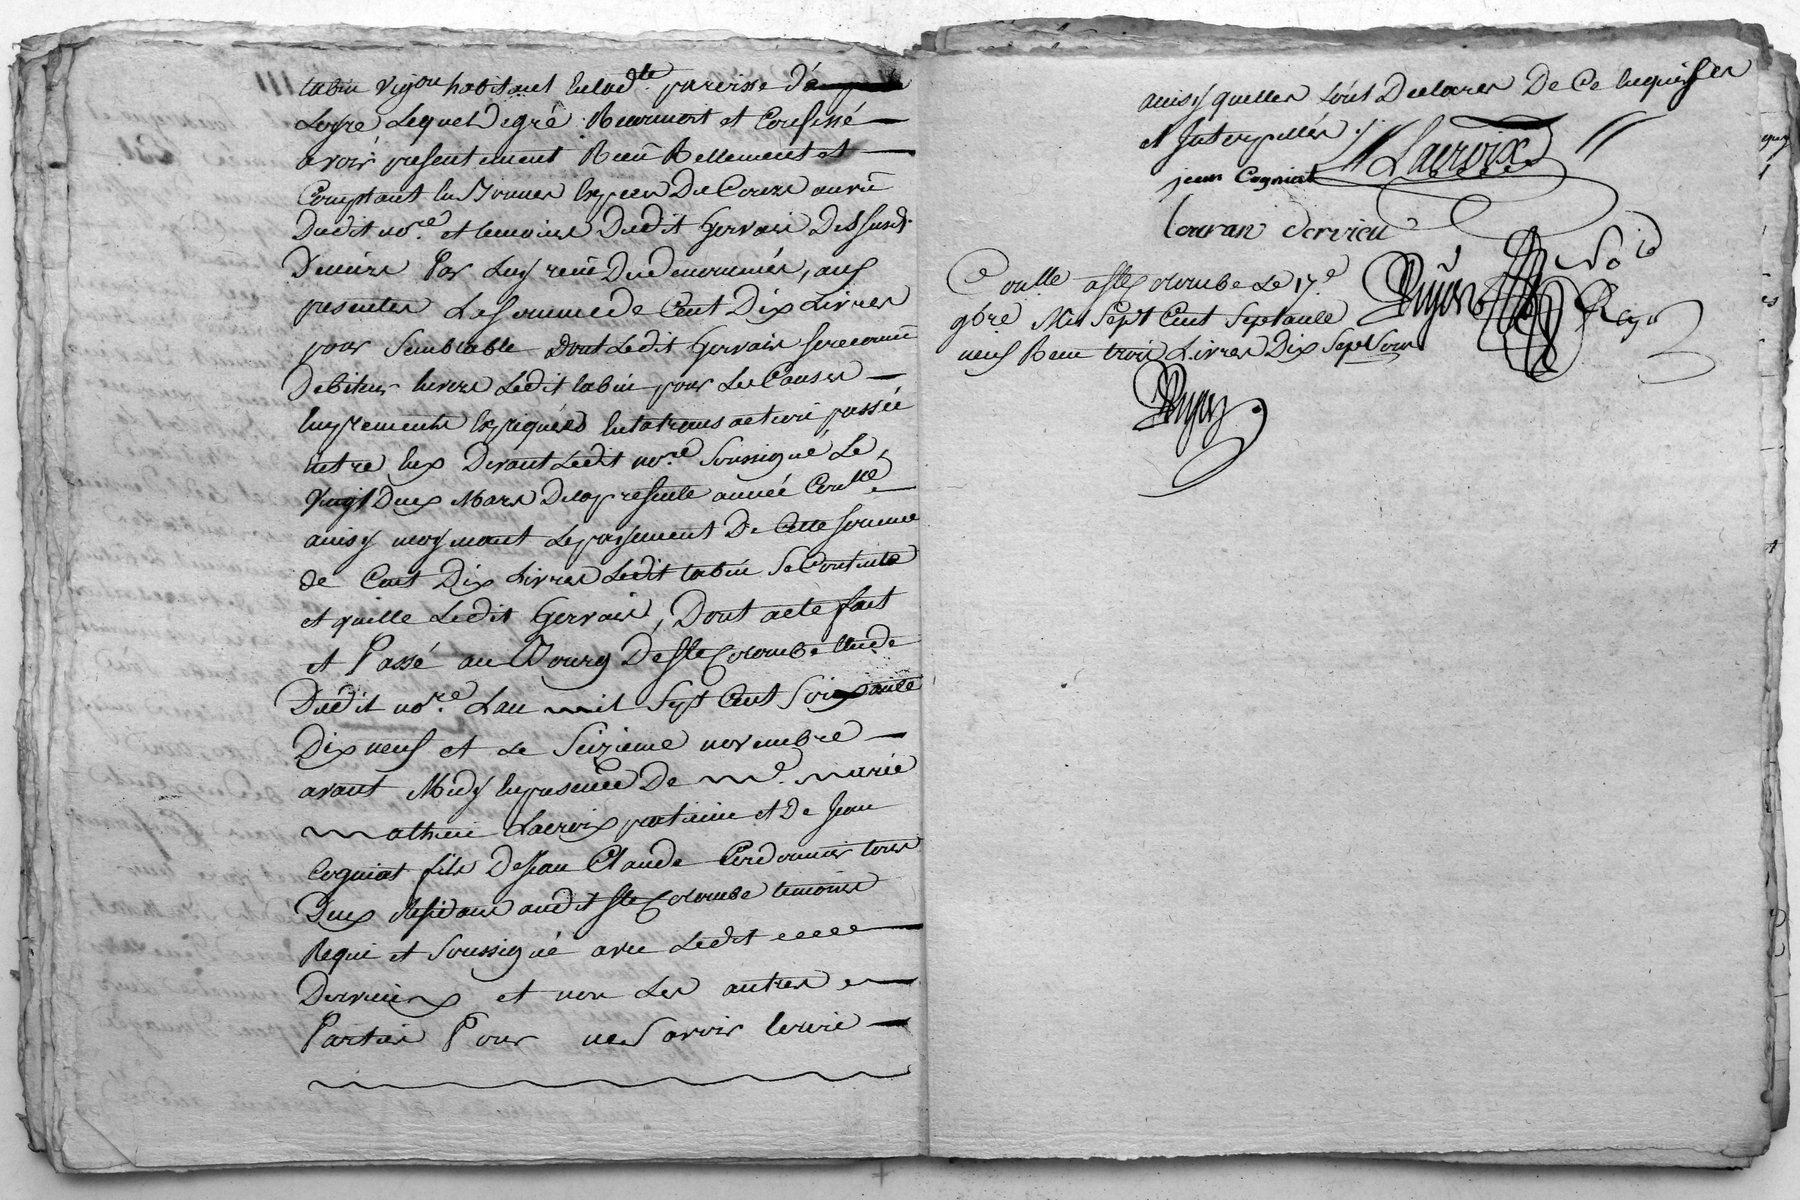 tabin vigon habitant enlad.te paroisse d'
Loyre Lequel de gré Reconnoit et Confessé
avoir presentement Receu Réellement et
Comptant en Bonnes Especes De Cours au vû
Dudit no.re et temoins Dudit Gervais
Deniers Par Luy remi, aux
presentes La somme de Cent Dix Livres
pour Semblable Dont Ledit Gervais
Debiteur Envers Ledit tabin pour Les Causes
Exprimées En la transaction passée
Entre Eux Devant Ledit no.re Soussigné Le
Vingt Deux Mars De la presente année Con.llé
ainsy moyenant Le payement De Cette somme
de Cent Dix Livres Ledit tabin Se Contente
et quitte Ledit Gervais, Dont acte fait
et Passé au Bourg De Ste Colombe Etude
Dudit no.re L'an mil Sept Cent Soixante
Dix neuf et Le Seizieme novembre
avant Midy En presence De me. marie
mathieu Lacroix praticien et De Jean
Cogniat fils De Jean Claude Cordonnier tous
Deux Residans audit Ste Colombe temoins
Requi et Soussigné avec Ledit
Dervieux et non Les autres
Parties Pour ne Savoir Ecrire
ainsy quelles L'ont Declarés De Ce Enquises
et Interpellés ./.
Lacroix
jean Cogniat
Dervieu
Con.lle a Ste Colombe Le 17.e
9bre Mil Sept Cent Septante
neuf Receu trois Livres Dix Sept Sous